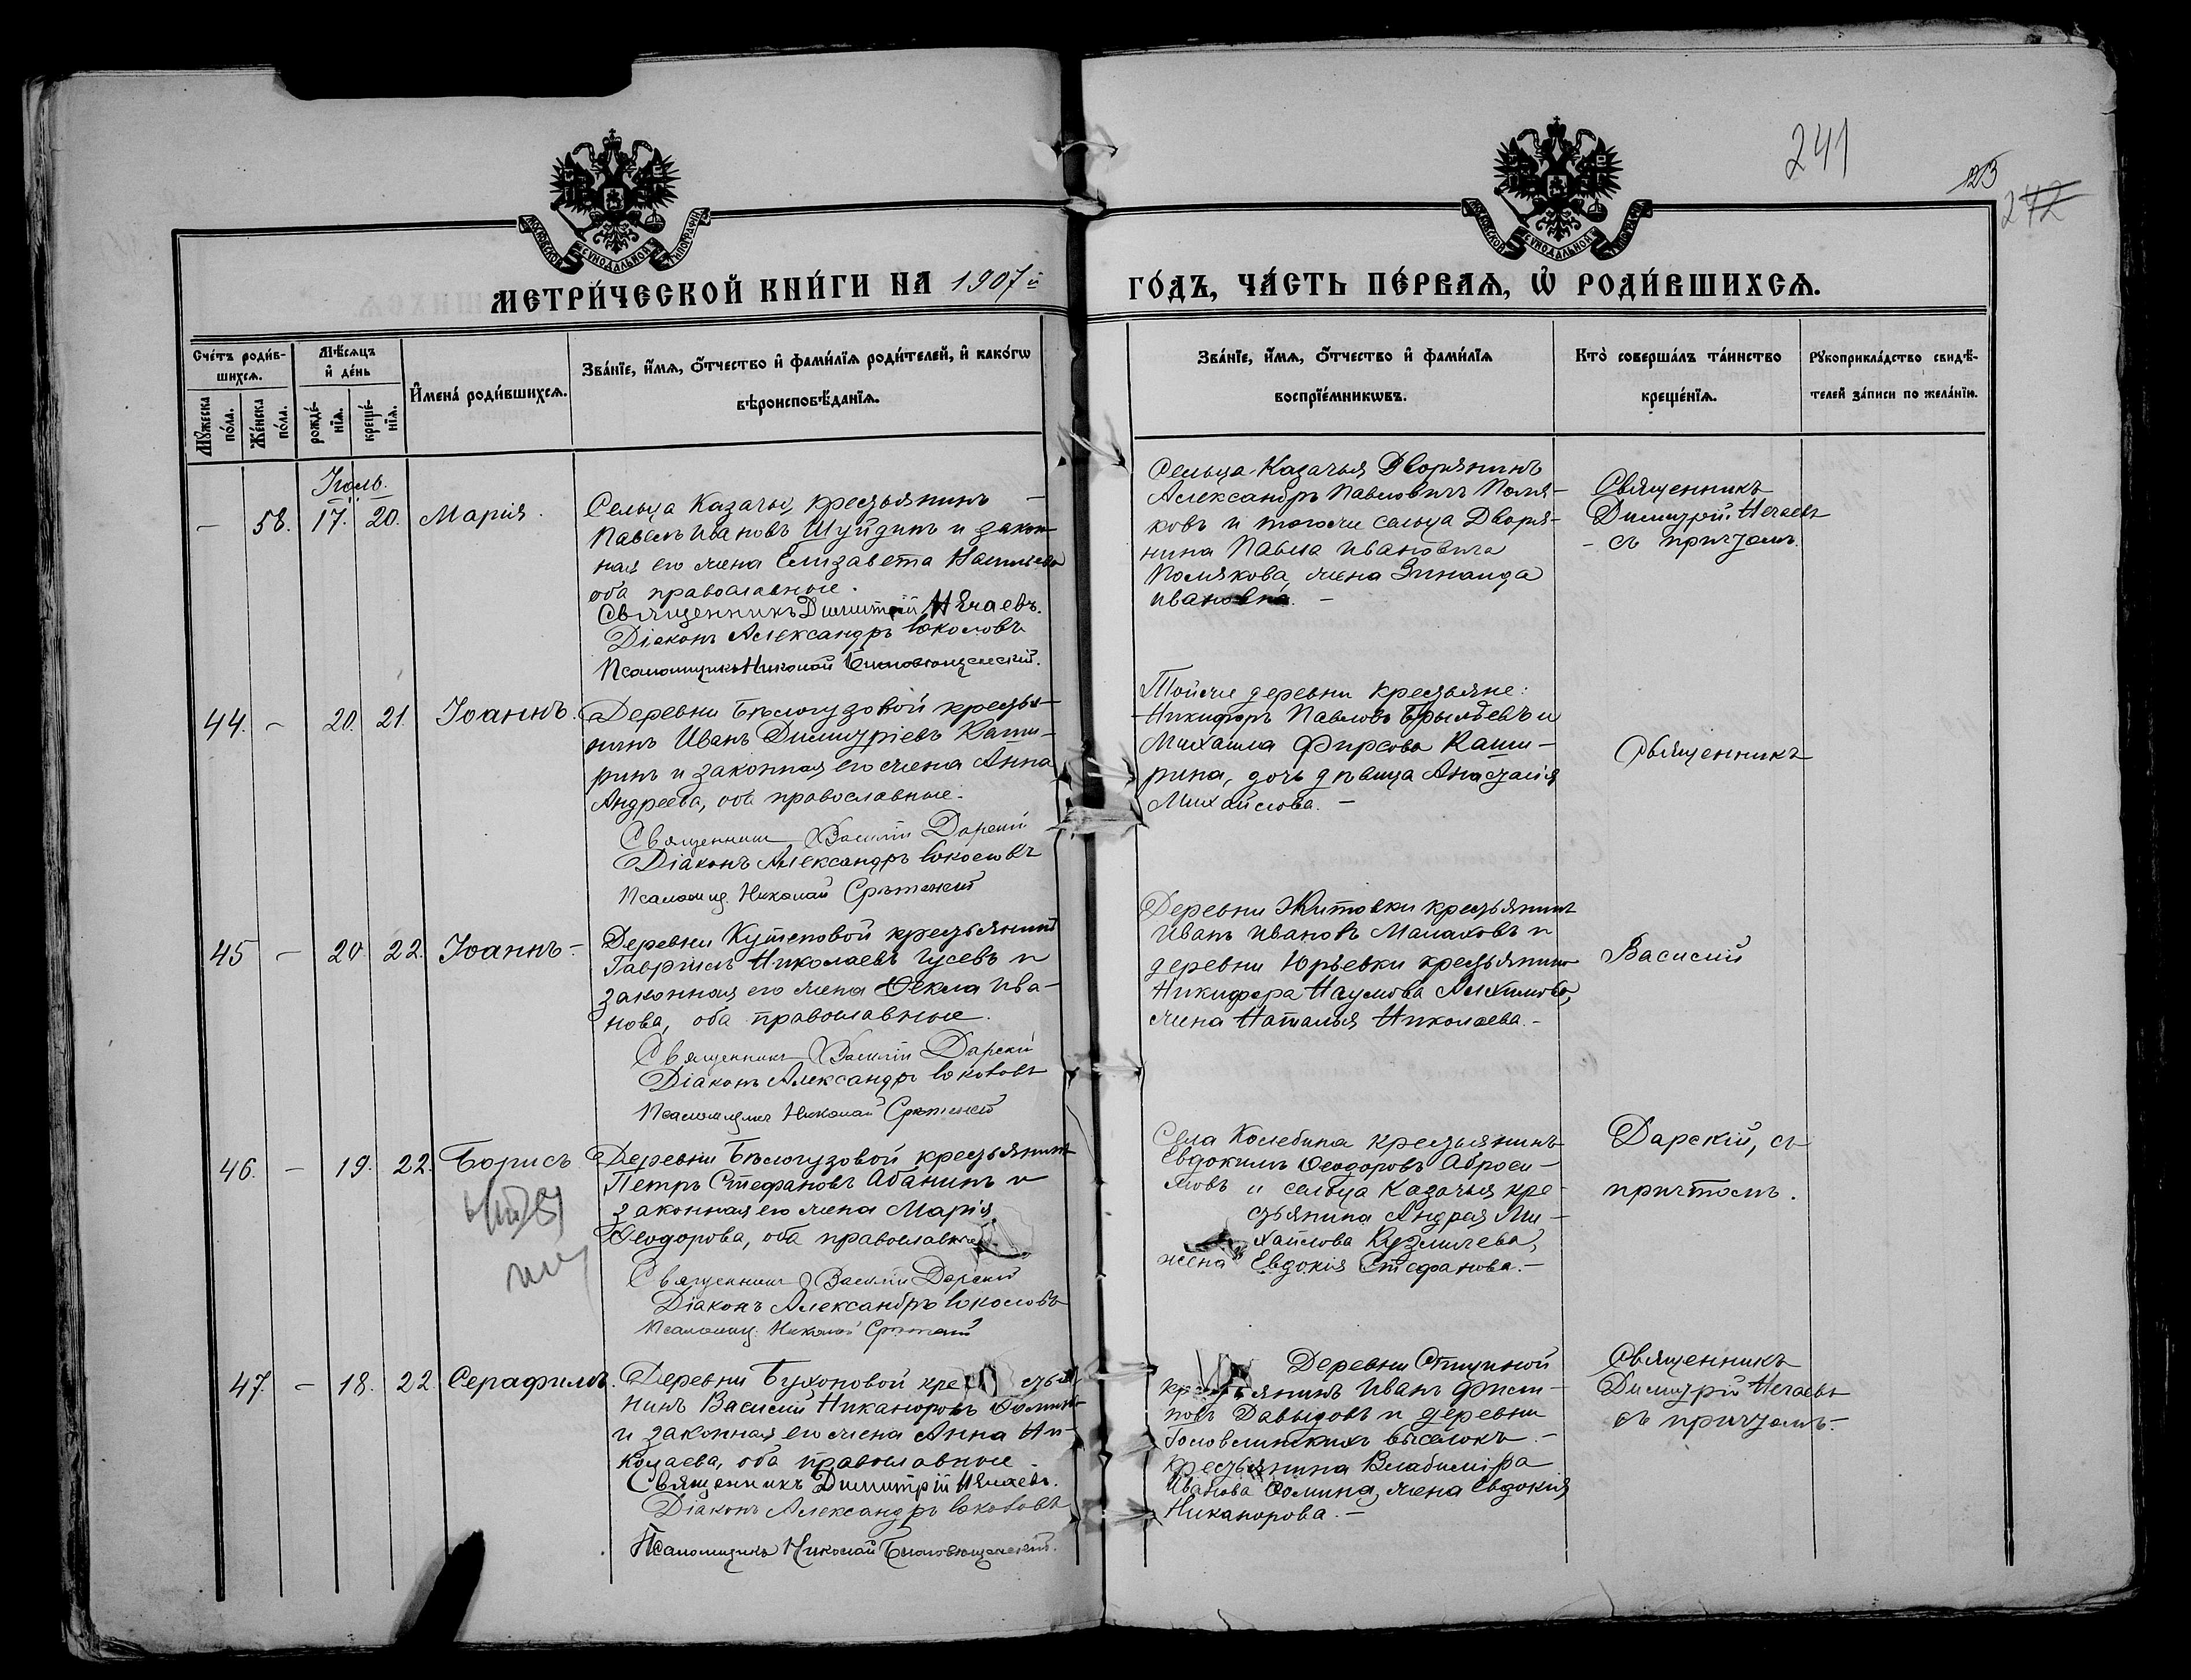 241
123
242
МОСКОВСКОЙ СУНОДАЛЬНОЙ ТИПОГРАФІИ
МОСКОВСКОЙ СУНОДАЛЬНОЙ ТИПОГРАФІИ
МЕТРИ́ЧЕСКОЙ КНИ́ГИ НА 1907й
ГО́ДЪ, ЧА́СТЬ ПЕ́РВАѦ, Ѽ РОДИ́ВШИХСѦ.
Сче́тъ роди́в-
шихсѧ.
Мꙋ́жеска по́ла.
Же́нска по́ла.
Мѣ́сѧцъ
и҆ де́нь
рожде́-
нїѧ.
креще́-
нїѧ.
И҆мена̀ роди́вшихсѧ.
Зва́нїе, и҆́мѧ, ѻ҆́тчество и҆ фами́лїѧ роди́телей, и҆ како́гѡ
вѣроисповѣ́данїѧ.
Зва́нїе, и҆́мѧ, ѻ҆́тчество и҆ фами́лїѧ
воспрїе́мникѡвъ.
Кто̀ соверша́лъ та́инство
креще́нїѧ.
Рꙋкоприкла́дство свидѣ́-
телей за́писи по жела́нїю.
Іюль.
– 58. 17. 20. Марія.
Сельца Казачья, крестьянинъ –
Павелъ Ивановъ Шуйдинъ и закон-
ная его жена Елизавета Васильева
оба православные.
Священникъ Димитрій Нечаевъ.
Діаконъ Александръ Соколовъ
Псаломщикъ Николай Благовѣщенскій.
Сельца Казачья Дворянинъ
Александръ Павловичъ Поля-
ковъ и тогоже сельца Дворя-
нина Павла Ивановича
Полякова, жена Зинаида
Ивановна. –
Священникъ
Димитрій Нечаевъ
– съ причтомъ.
44. – 20. 21. Іоаннъ.
Деревни Бѣлогузовой кресть-
нинъ Иванъ Димитріевъ Каши-
ринъ и законная его жена Анна
Андреева, оба православные.
Священникъ Василій Дарскій
Діаконъ Александръ Соколовъ
Псаломщ. Николай Срѣтенскій
Тойже деревни крестьяне:
Никифоръ Павловъ и
Михаила Фирсова Каши-
рина, дочь дѣвица Анастасія
Михайлова. –
Священникъ
45 – 20. 22. Іоаннъ –
Деревни Кутеповой крестьянинъ
Гавріилъ Николаевъ Гусевъ и
законная его жена Ѳекла Ива-
нова, оба православные.
Священникъ Василій Дарскій
Діаконъ Александръ Соколовъ
Псаломщикъ Николай Срѣтенскій
Деревни Житовки крестьянинъ
Иванъ Ивановъ Малаховъ и
деревни Юрьевки крестьянина
Никифора Наумова
жена Наталья Николаева. –
Василій
46. – 19. 22. Борисъ
Деревни Бѣлогузовой крестьянинъ
Петръ Стефановъ Абанинъ и
законная его жена Марія
Ѳеодорова, оба православные
Священникъ Василій Дарскій
Діаконъ Александръ Соколовъ
Псаломщ. Николай Срѣтенскій
Села Колебина крестьянинъ
Евдокимъ Ѳеодоровъ Аброси-
мовъ и сельца Казачья кре-
стьянина Андрея Ми-
хайлова Кузмичева,
жена Евдокія Стефанова. –
Дарскій, съ
причтомъ.
47. – 18. 22. Серафимъ.
Деревни Бухоновой кре стья-
нинъ Василій Никаноровъ Ѳоминъ
и законная его жена Анна Ни-
колаева, оба православные.
Священникъ Димитрій Нечаевъ.
Діаконъ Александръ Соколовъ
Псаломщикъ Николай Благовѣщенскій.
Деревни Стициной
крестьянинъ Иванъ Филип-
повъ Давыдовъ и деревни
Головлинскихъ выселокъ –
крестьянина Владиміра
Иванова Ѳомина, жена Евдокія
Никанорова. –
Священникъ
Димитрій Нечаевъ
съ причтомъ. –